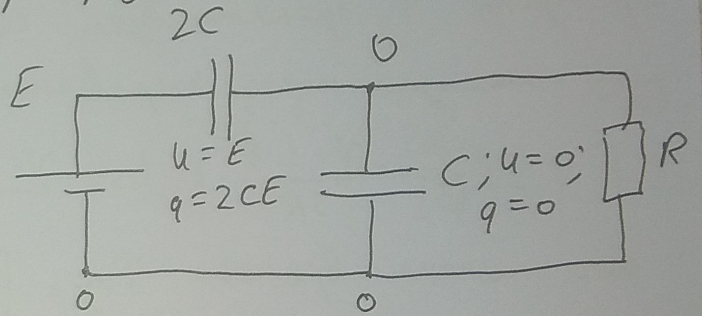 2C
0
E
u = E
q = 2CE
C; u = 0;
q = 0
R
0
0